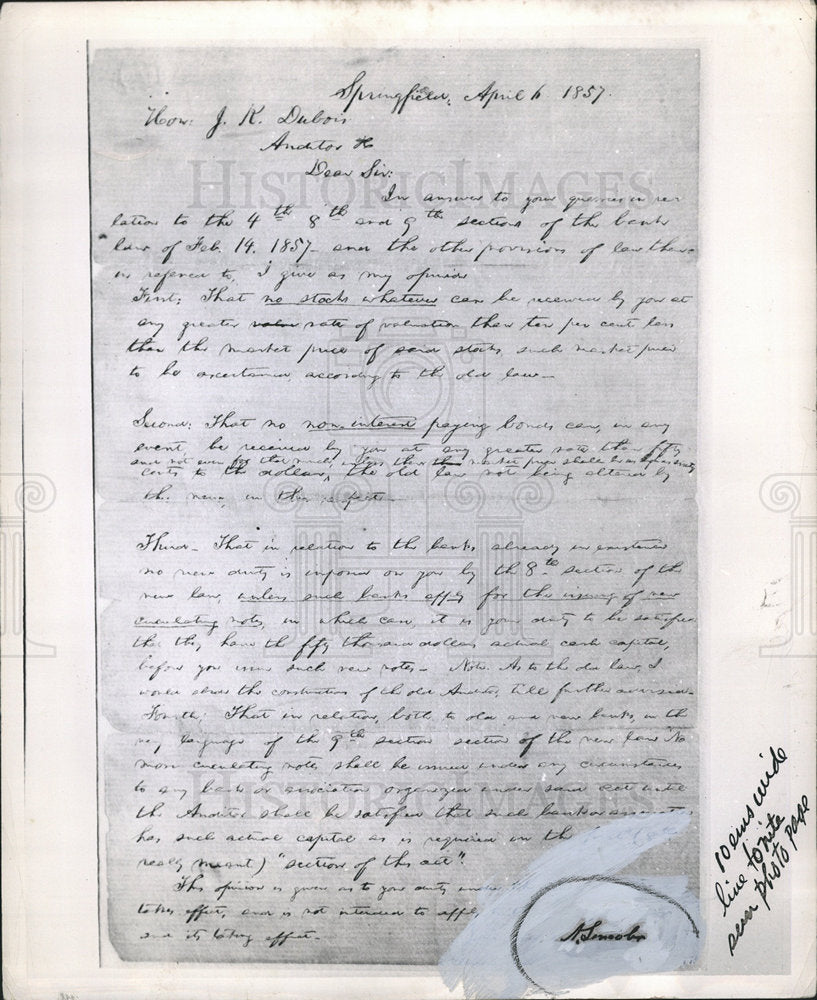 Springfield, April 6 1857.
Hon: J. K. Dubois
Auditor &c
Dear Sir:
HISTORICIMAGES
In answer to your queries in re-
lation to the 4th 8th and 9th sections of the bank
law of Feb. 14. 1857– and the other provisions of law there-
in refered to, I give as my opinion
First: That no stocks whatever can be received by you at
any greater rate of valuation than ten per cent less
than the market price of said stocks, such market price
to be ascertained, according to the old law–
Second: That no non-interest paying bonds can, in any
event, be received by you at any greater rate than fifty
and not even for that much, unless their market price shall be
cents to the dollar, the old law not being altered by
the new, in this respect–
Third– That in relation to the banks already in existence
no new duty is imposed on you by the 8th section of the
new law, unless such banks apply for the issuing of new
circulating notes, in which case, it is your duty to be satisfied
that they have the fifty thousand dollars actual cash capital,
before you issue such new notes– Note. As to the old law, I
would abide the construction of the old Auditor, till further
Fourth: That in relation, both, to old and new banks, in the
very language of the 9th section section of the new law "No
more circulating notes shall be issued under any circumstances
to any bank or association organized under said act until
the Auditor shall be satisfied that such bank or association
HISTORICIMAGES
has such actual capital as is required in the
really meant) "section of this act".
This opinion is given as to your duty under
takes effect, and is not intended to apply
and its taking effect–
A. Lincoln
10 ems wide
line to nite
seen photo page